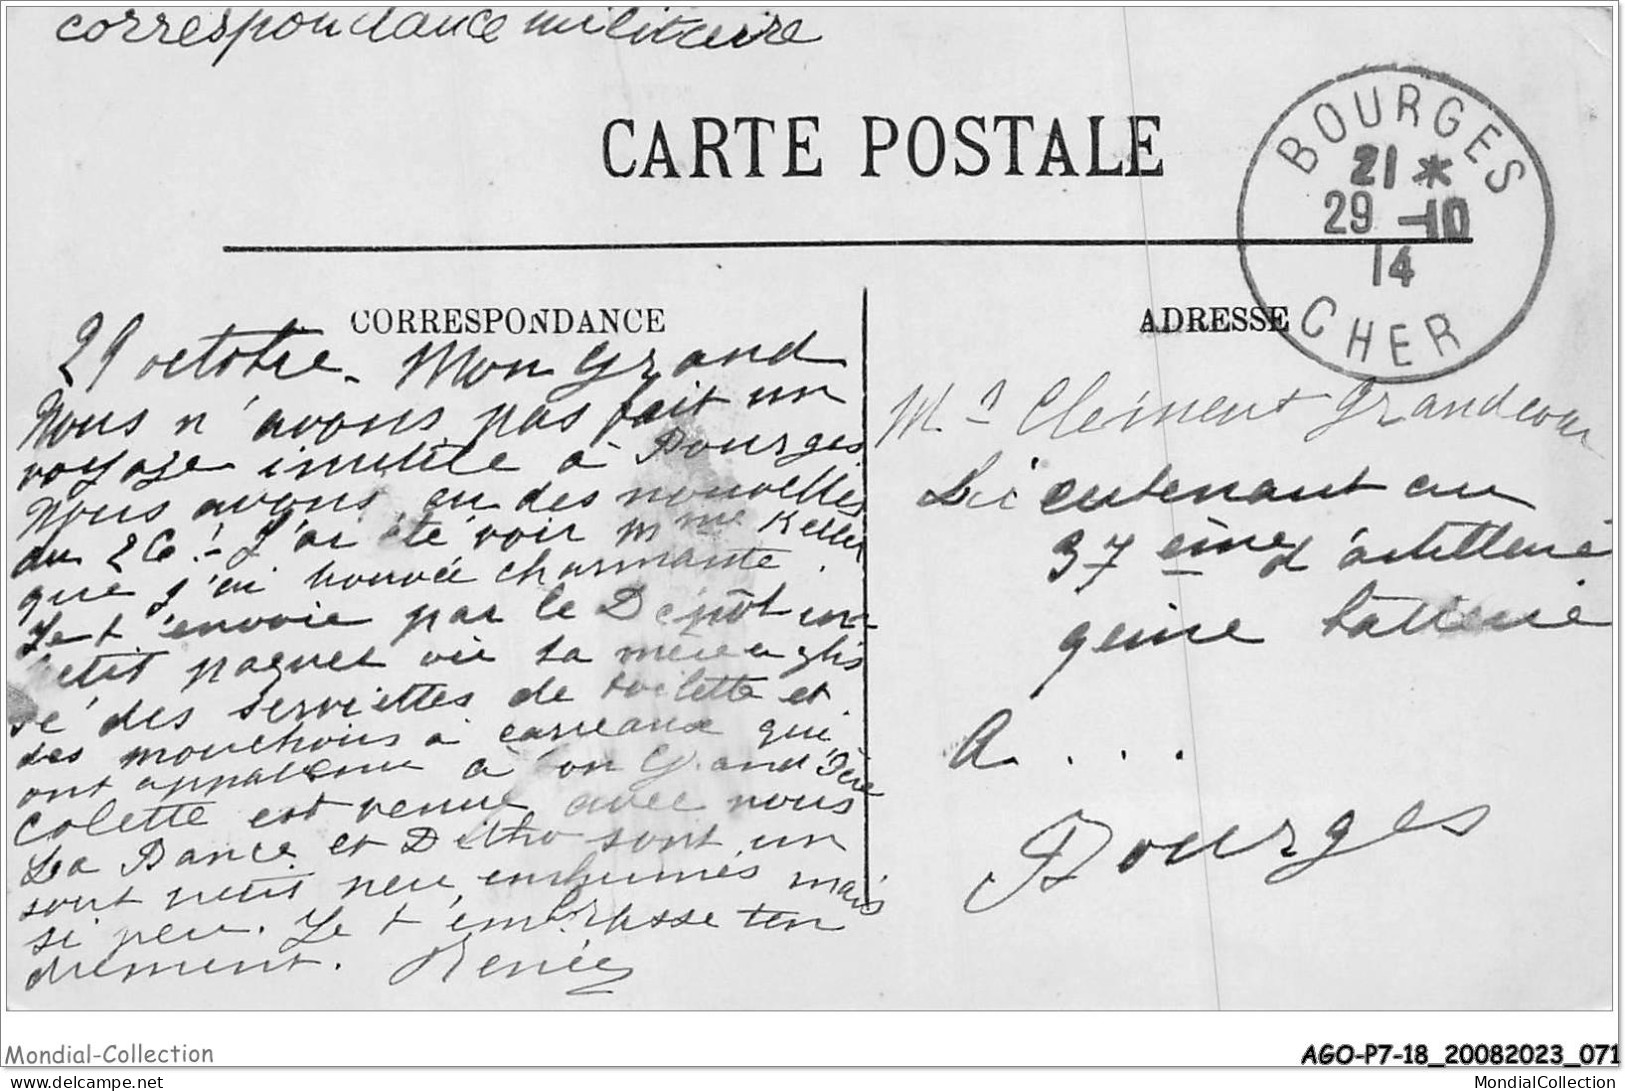 correspondance militaire
CARTE POSTALE
BOURGES
21 *
29 -10
14
CHER
CORRESPONDANCE
29 octobre. Mon Grand
Nous n'avons pas fait un
voyage inutile à Bourges
Nous avons eu des nouvelles
du 26! - J'ai été voir Mme Keller
que j'ai trouvée charmante.
Je t'envoie par le Dépôt un
petit paquet où ta mère a glis
sé des serviettes de toilette et
des mouchoirs à carreaux qui
ont appartenu à ton Grand'Père
Colette est venue avec nous
La Bance et sont un
sont petit peu enrhumés mais
si peu. Je t'embrasse ten
drement. Renée
ADRESSE
Mr Clément Grandcour
Lieutenant au
37ème d'artillerie
9eme batterie
A . . .
Bourges
Mondial-Collection
AGO-P7-18_20082023_071
www.delcampe.net
MondialCollection